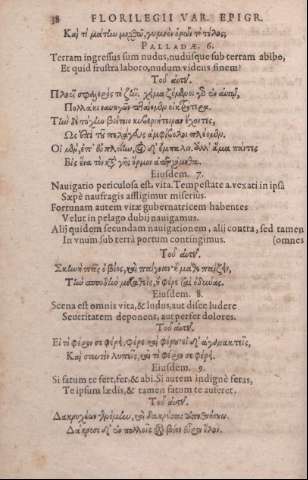 38 FLORILEGII VAR. EPIGR.
Καὶ τί μάτην μοχθῶ, γυμνὸν ὁρῶν τὸ τέλος;
PALLADÆ. 6.
Terram ingressus sum nudus, nudusque sub terram abibo,
Et quid frustra laboro, nudum videns finem?
Τοῦ αὐτοῦ.
Πλοῦς σφαλερὸς τὸ ζῆν, χειμαζόμενοι γὰρ ἐν αὐτῷ,
Πολλάκι ναυηγῶν πταίομεν οἰκτρότερα.
Τὴν δὲ τύχην βιότοιο κυβερνήτειραν ἔχοντες,
Ὡς ἐπὶ τοῦ πελάγους ἀμφίβολοι πλέομεν.
Οἱ μὲν ἐπ' εὐπλοΐην, οἱ δ' ἔμπαλιν. ἀλλ' ἅμα πάντες
Εἰς ἕνα τὸν κατὰ γῆς ὅρμον ἀπερχόμεθα.
Eiusdem. 7.
Nauigatio periculosa est vita. Tempestate a. vexati in ipsa
Sæpè naufragis affligimur miserius.
Fortunam autem vitæ gubernatricem habentes
Velut in pelago dubij nauigamus.
Alij quidem secundam nauigationem, alij contra, sed tamen
In vnum sub terra portum contingimus. (omnes
Τοῦ αὐτοῦ.
Σκηνὴ πᾶς ὁ βίος, καὶ παίγνιον· ἢ μάθε παίζειν,
Τὴν σπουδὴν μεταθεὶς, ἢ φέρε τὰς ὀδύνας.
Eiusdem. 8.
Scena est omnis vita, & ludus, aut disce ludere
Seueritatem deponens, aut perfer dolores.
Τοῦ αὐτοῦ.
Εἰ τὸ φέρον σε φέρει, φέρε καὶ φέρου· εἰ δ' ἀγανακτεῖς,
Καὶ σαυτὸν λυπεῖς, καὶ τὸ φέρον σε φέρει.
Eiusdem. 9.
Si fatum te fert, fer, & abi. Si autem indignè feras,
Te ipsum lædis, & tamen fatum te auferet,
Τοῦ αὐτοῦ.
Δακρυχέων γενόμην, καὶ δακρύσας ἀποθνήσκω·
Δάκρυσι δ' ἐν πολλοῖς τὸν βίον εὗρον ὅλον.